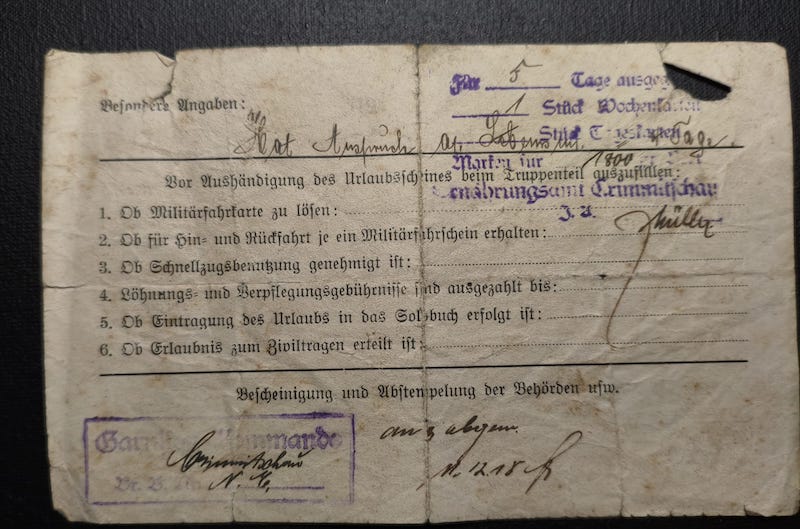 Für 5 Tage ausgeg
Besondere Angaben:
1 Stück Wochenkarten
Stück Tageskarten
Hat Anspruch Tage.
Marken für 1800
Vor Aushändigung des Urlaubsscheines beim Truppenteil auszufüllen:
Ernährungsamt Crimmitschau
1. Ob Militärfahrkarte zu lösen:
J. A.
Müller
2. Ob für Hin- und Rückfahrt je ein Militärfahrschein erhalten:
3. Ob Schnellzugsbenutzung genehmigt ist:
4. Löhnungs- und Verpflegungsgebührnisse sind ausgezahlt bis:
5. Ob Eintragung des Urlaubs in das Soldbuch erfolgt ist:
6. Ob Erlaubnis zum Ziviltragen erteilt ist:
Bescheinigung und Abstempelung der Behörden usw.
Garnison-Kommando
Crimmitschau
an &
11. 12. 18